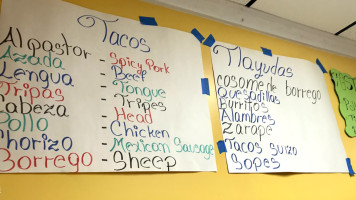 Tacos
Alpastor - Spicy Pork
Azada - Beef
Lengua - Tongue
Tripas - Tripes
Cabeza - Head
Pollo - Chicken
Chorizo - Mexican Sausage
Borrego - Sheep
Tlayudas
cosome de borrego
Quesadillas
Burritos
Alambres
Zarape
Tacos suizo
Sopes